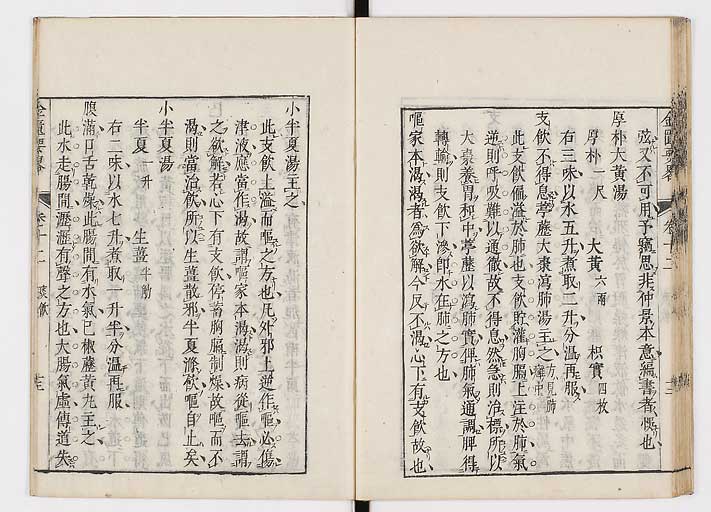 弦又不可用予竊思非仲景本意編書者悞也
厚朴大黃湯
厚朴一尺 大黃六兩 枳實四枚
右三味以水五升煮取二升分溫再服
支飲不得息葶藶大棗瀉肺湯主之方見肺癰中
此支飲偏溢於肺也支飲貯灌胸膈上注於肺氣
逆則呼吸難以通徹故不得息然急則治標所以
大棗養胃和中葶藶以瀉肺實俾肺氣通調脾得
轉輸則支飲下滲即水在肺之方也
嘔家本渴渴者為欲解今反不渴心下有支飲故也
小半夏湯主之
此支飲上溢而嘔之方也凡外邪上逆作嘔必傷
津液應當作渴故謂嘔家本渴渴則病從嘔去謂
之欲解若心下有支飲停蓄胸膈制燥故嘔而不
渴則當治飲所以生薑散邪半夏滌飲嘔自止矣
小半夏湯
半夏一升 生薑半觔
右二味以水七升煮取一升半分溫再服
腹滿口舌乾燥此腸間有水氣已椒藶黃丸主之
此水走腸間瀝瀝有聲之方也大腸氣虛傳道失
金匱要畧 卷十二 痰飲